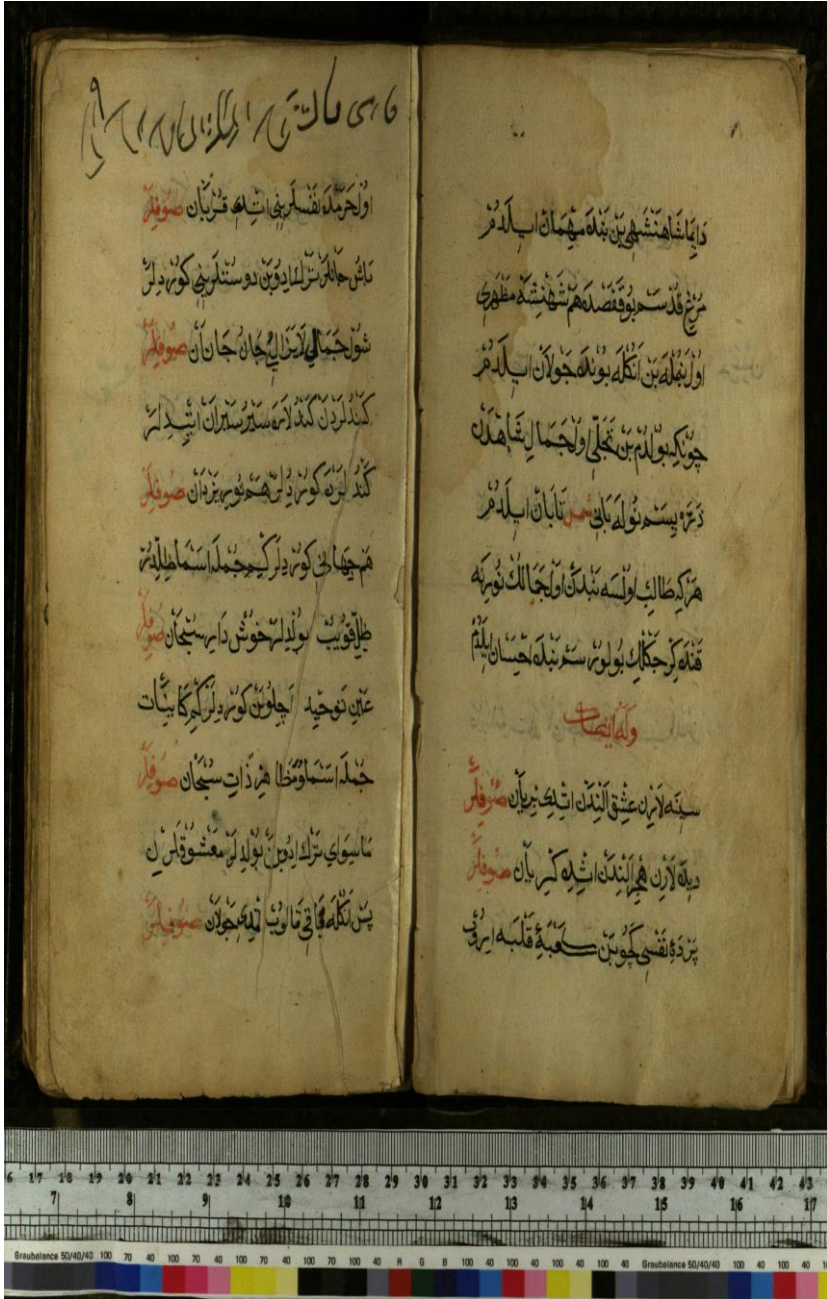 دایما شاهنشهی بن بنده مهمان ایلدم
مرغ قدسم بو قفصده هم شهنشه مظهری
اول بنمله بن انكله بونده جولان ایلدم
چونكه بولدم بن تجلی اول جمال شاهدن
ذره یسم نوله بانی شمس تابان ایلدم
هركه طالب اولسه بندن اول جمالك نورینه
قنده كرجكلك بولورسم بنده احسان ایلدم
وله ایضا
سینه لارن عشق الندن اتدی بریان صوفیلر
دیده لارن هجر الندن اتدی كریان صوفیلر
پردهٔ نفسی كچوبن كعبهٔ قلبه ایروب
اول حرمده نفسلرینی اتدی قربان صوفیلر
باش جانلرن ترك ادوبن دوستلرینی كوردلر
شول جمالی لایزالی جان جانان صوفیلر
كندلردن كندلاره سیر سیران ایتدیلر
كندلرده كوردیلر هم نور یزدان صوفیلر
هم جهانی كوردلر كیم جمله اسما ظلیدر
ظلی قویوب بولدلر خوش دار سبحان صوفیلر
عین توحید اچلوبن كوردلر كم كاینات
جمله اسما و مظاهر ذات سبحان صوفیلر
ماسوای ترك ادوبن بولدلر معشوقلرن
پس انكله باقی قالوب اتدی جولان صوفیلر
6 17 18 19 20 21 22 23 24 25 26 27 28 29 30 31 32 33 34 35 36 37 38 39 40 41 42 43
7 8 9 10 11 12 13 14 15 16 17
Graubalance 50/40/40 100 70 40 100 70 40 100 70 40 100 70 40 R G B 100 40 100 40 100 40 100 40 Graubalance 50/40/40 100 40 100 40 1